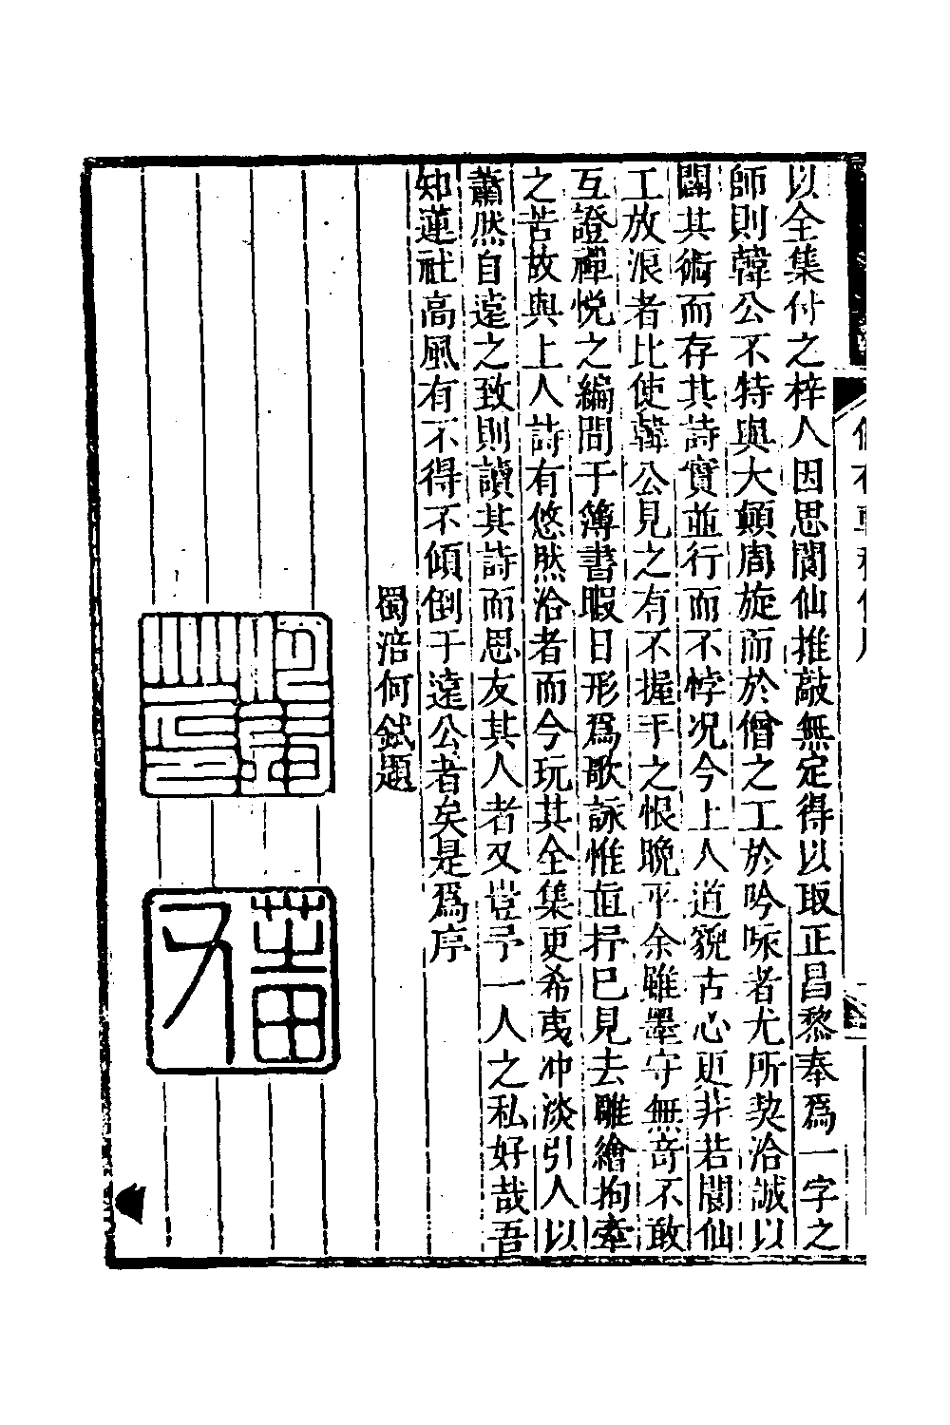 以全集付之梓人因思閬仙推敲無定得以取正昌黎奉爲一字之
師則韓公不特與大顛周旋而於僧之工於吟咏者尤所契洽誠以
闢其術而存其詩實並行而不悖况今上人道貌古心更非若閬仙
工放浪者比使韓公見之有不握手之恨晚乎余雖墨守無奇不敢
互證禪悦之編問于簿書暇日形爲歌詠惟直抒巳見去雕繪拘牽
之苦故與上人詩有悠然洽者而今玩其全集更希夷冲淡引人以
蕭然自遠之致則讀其詩而思友其人者又豈予一人之私好哉吾
知蓮社高風有不得不傾倒于遠公者矣是爲序
蜀涪何鉽題